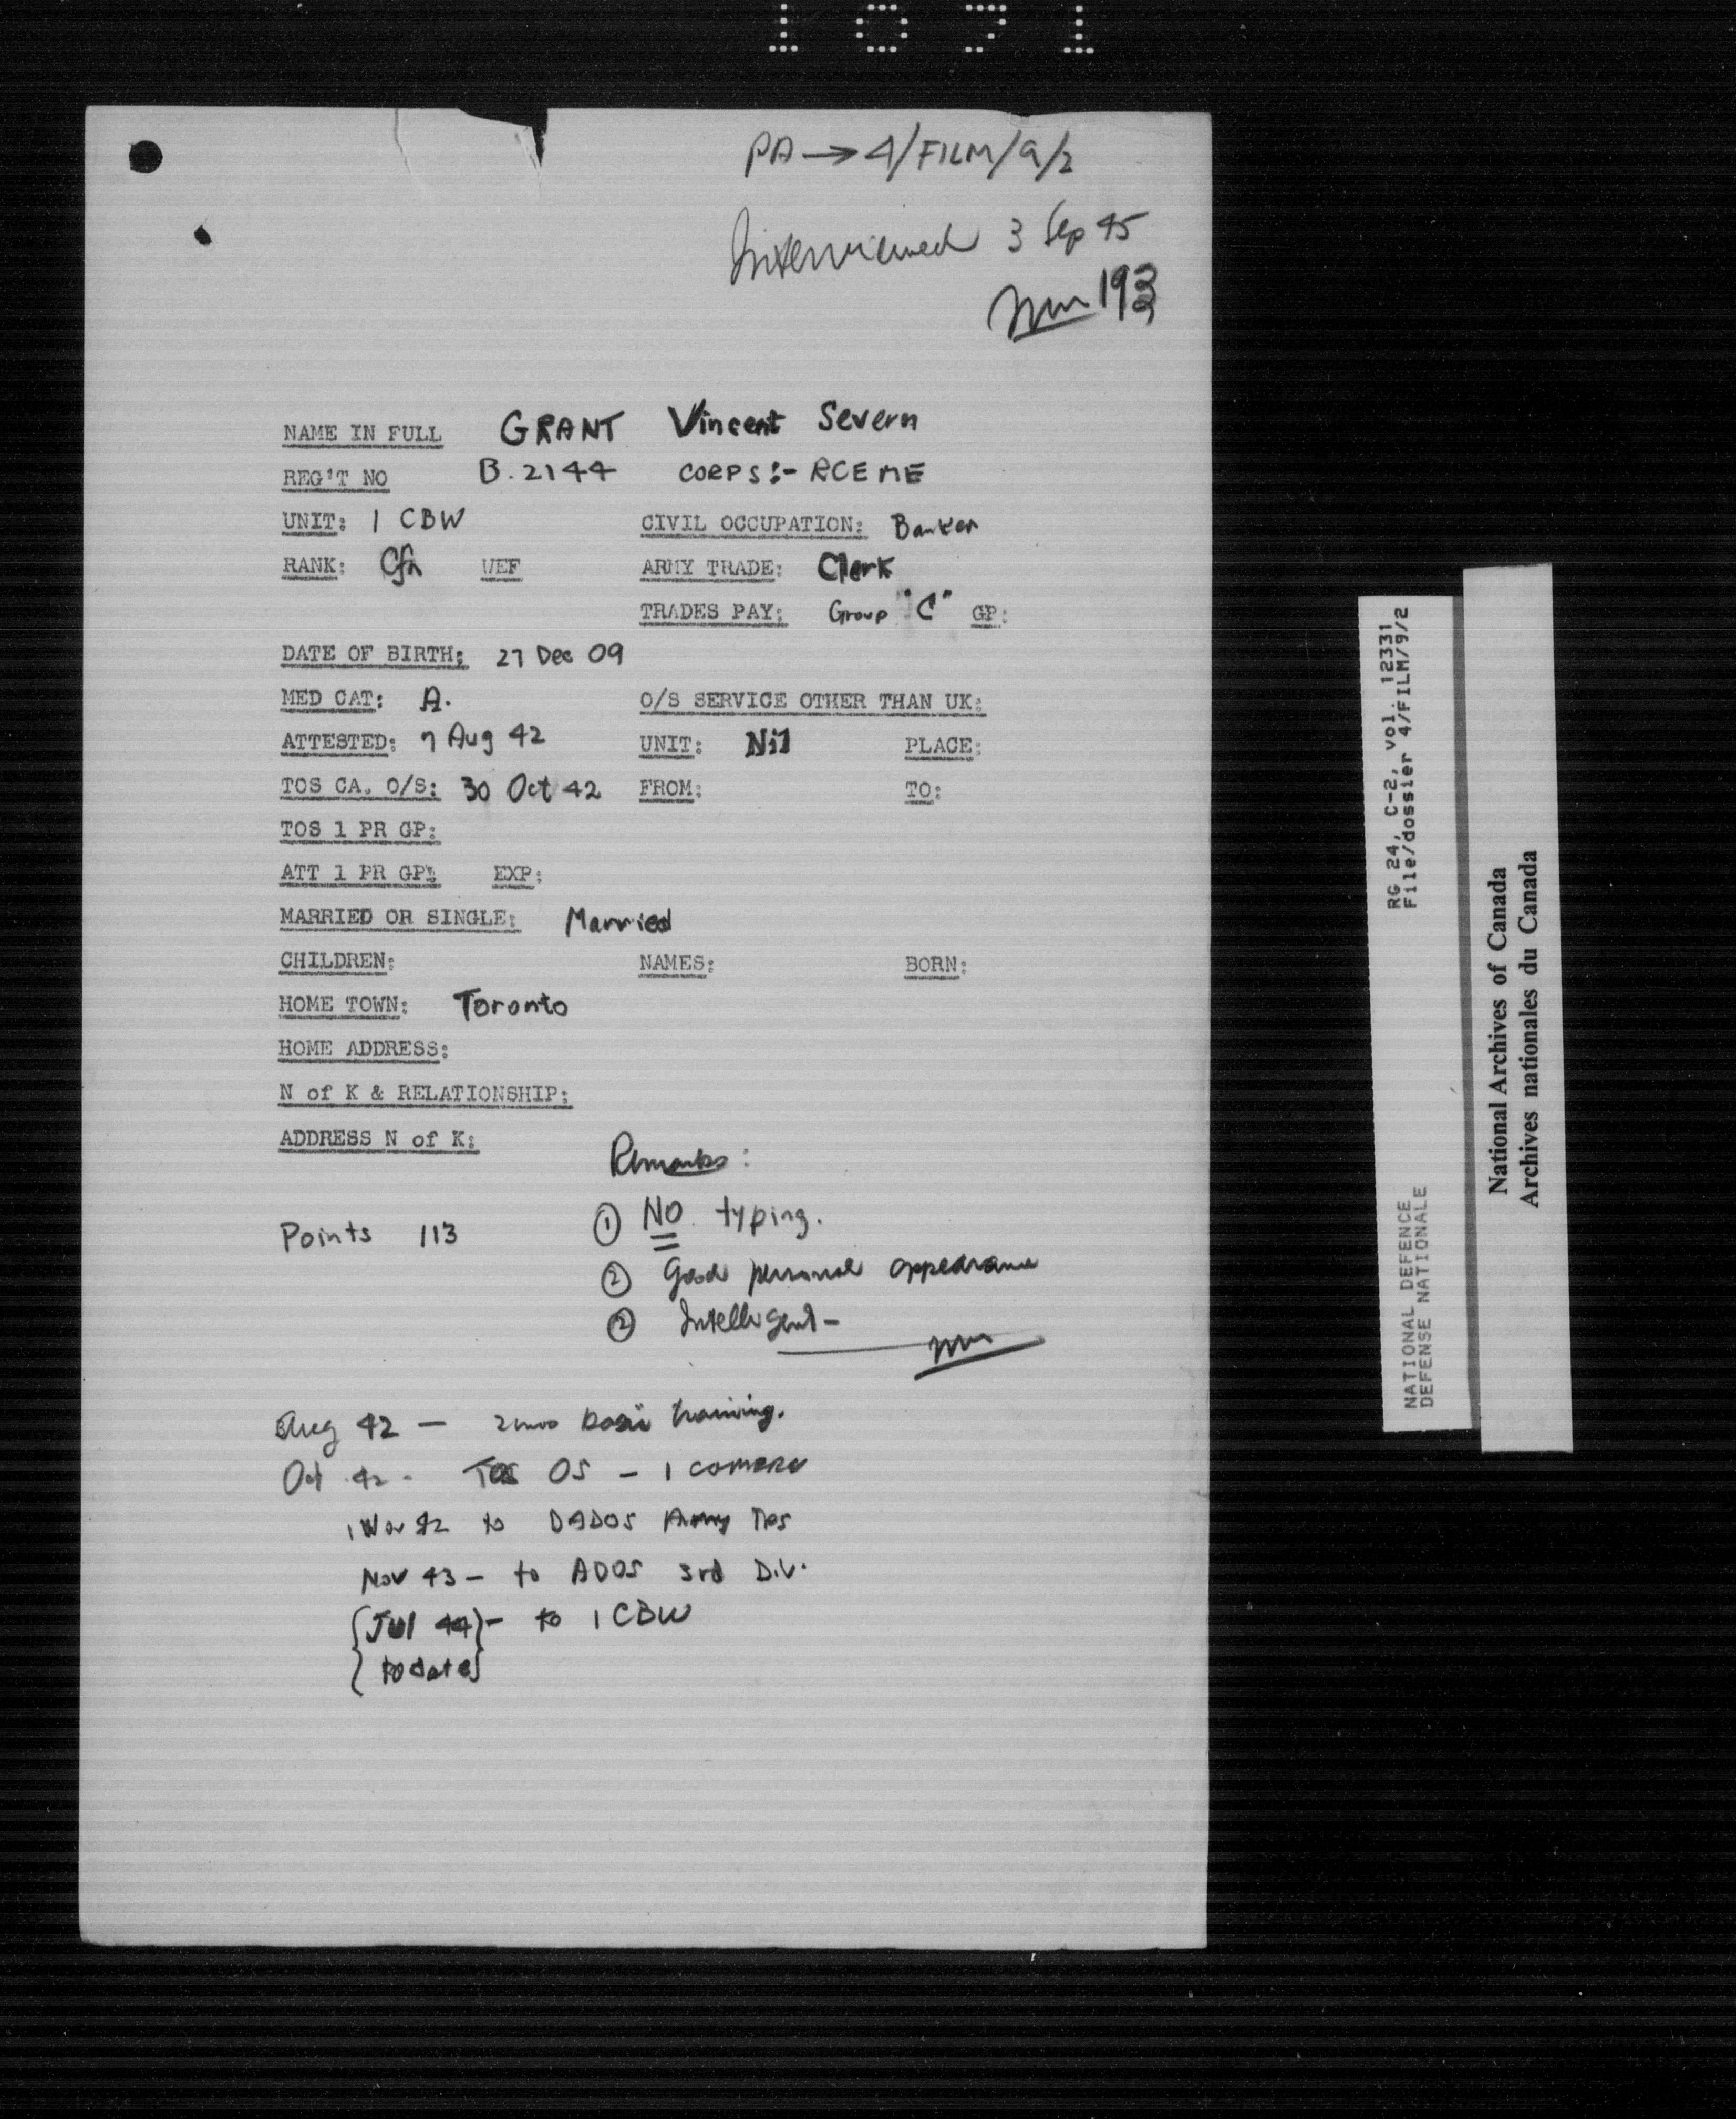 PA → 4/FILM/9/2
Interviewed 3 Sep 45
193
NAME IN FULL GRANT Vincent Severn
REG'T NO B.2144 CORPS:- RCEME
UNIT: 1 CBW CIVIL OCCUPATION: Banker
RANK: Cfn WEF ARMY TRADE: Clerk
TRADES PAY: Group "C" GP:
DATE OF BIRTH: 27 Dec 09
MED CAT: A. O/S SERVICE OTHER THAN UK:
ATTESTED: 7 Aug 42 UNIT: Nil PLACE:
TOS CA. O/S: 30 Oct 42 FROM: TO:
TOS 1 PR GP:
ATT 1 PR GP: EXP:
MARRIED OR SINGLE: Married
CHILDREN: NAMES: BORN:
HOME TOWN: Toronto
HOME ADDRESS:
N of K & RELATIONSHIP:
ADDRESS N of K:
Remarks:
Points 113
① NO typing.
② Good personal appearance
② Intelligent-
Aug 42 — 2 mos basic training.
Oct 42 - TOS OS - 1
1 Nov 42 to DADOS Army Tps
Nov 43 - to ADOS 3rd Div.
{Jul 44}- to 1 CBW
{to date}
RG 24, C-2, vol. 12331
File/dossier 4/FILM/9/2
NATIONAL DEFENCE
DEFENSE NATIONALE
National Archives of Canada
Archives nationales du Canada